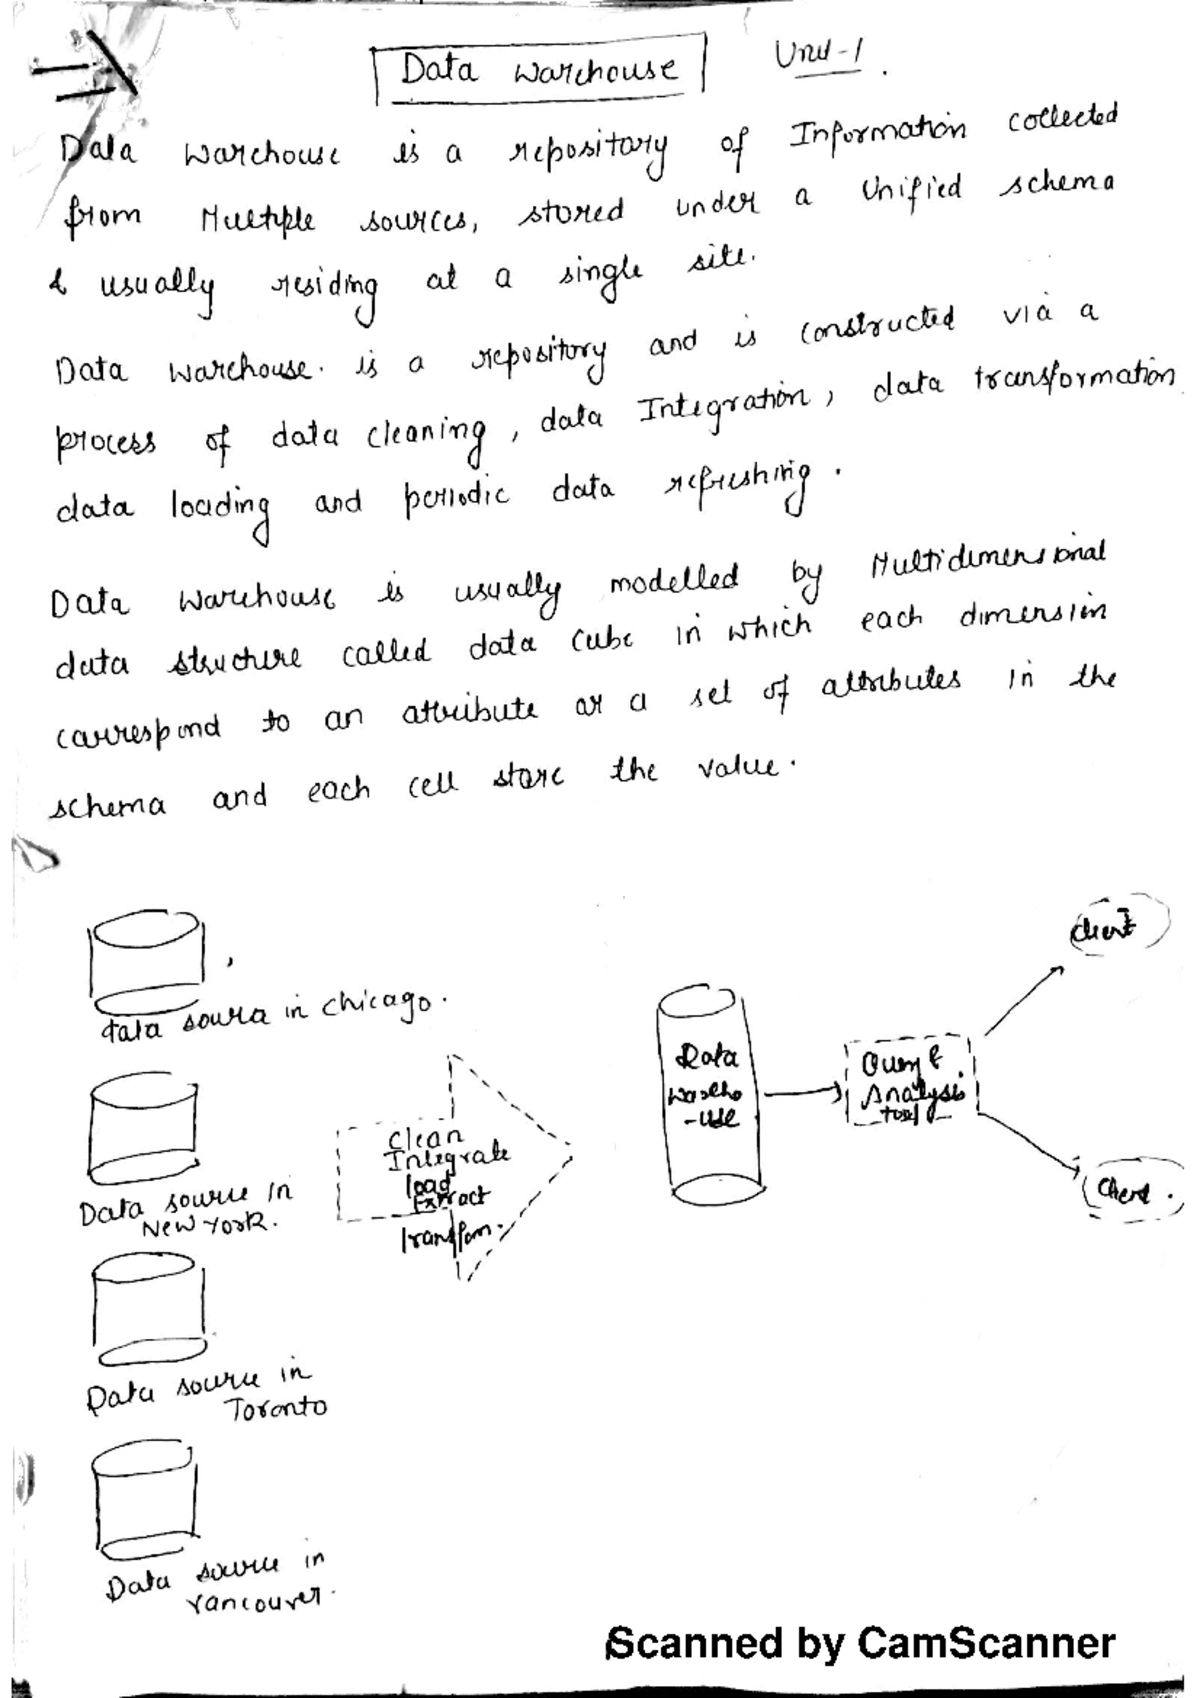 Data Warehouse
Unit-1.
Data Warehouse is a repository of Information collected
from Multiple sources, stored under a Unified schema
& usually residing at a single site.
Data Warehouse. is a repository and is constructed via a
process of data cleaning, data Integration, data transformation
data loading and periodic data refreshing.
Data Warehouse is usually modelled by Multidimensional
data structure called data Cube in which each dimension
correspond to an attribute or a set of attributes in the
schema and each cell store the value.
data source in chicago.
Data source in
New York.
Data source in
Toronto
Data source in
Vancouver.
Clean
Integrate
load
Extract
Transform.
Data
Wareho
-use
Query &
Analysis
tool
Client
Client.
Scanned by CamScanner